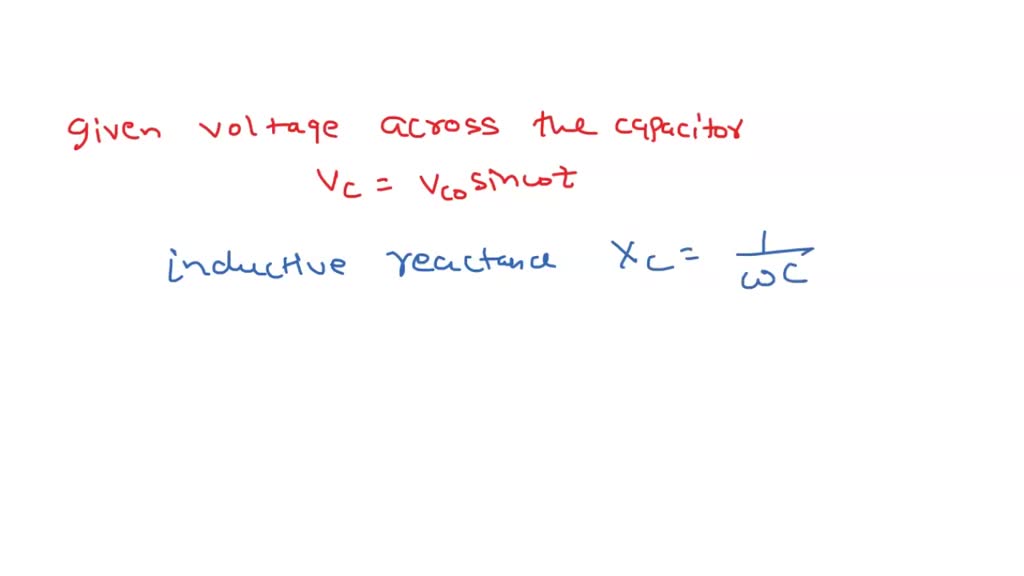 given voltage across the capacitor
Vc = Vco sinωt
inductive reactance Xc = 1/ωC